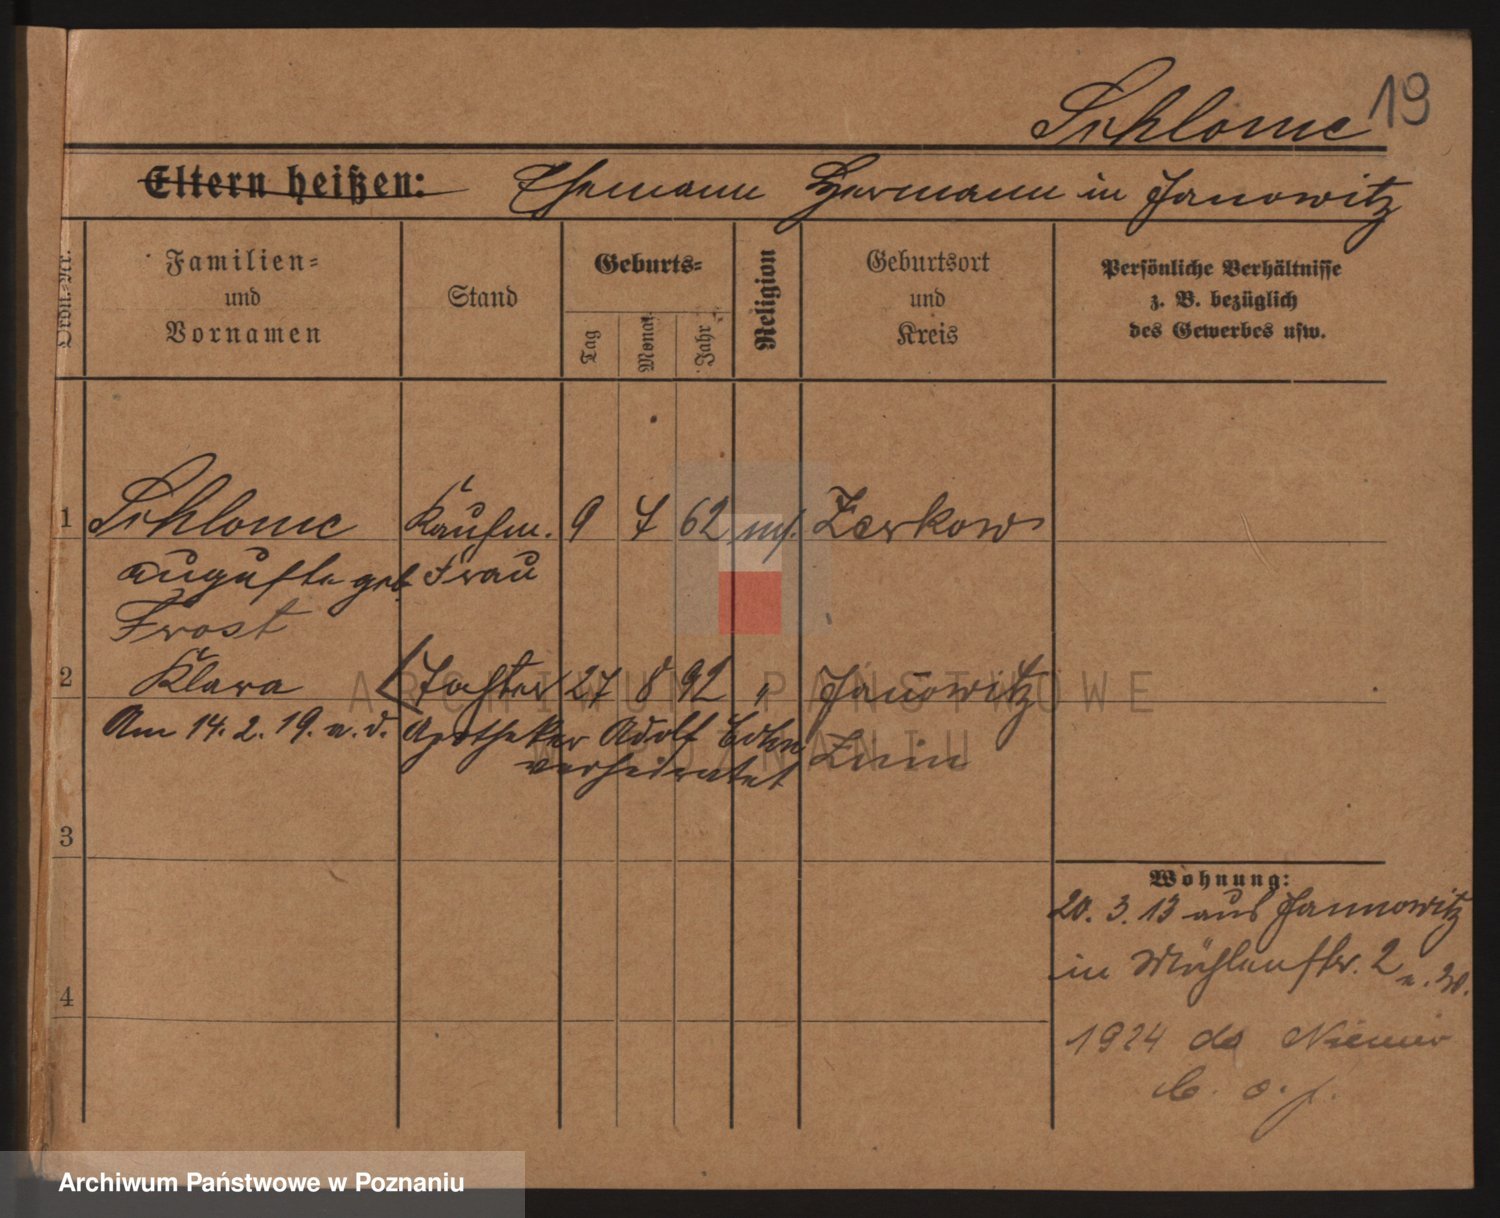 19
Schlome
Eltern heißen: Ehemann Hermann in Janowitz
Ordn.-Nr.
Familien-
und
Vornamen
Stand
Geburts-
Tag
Monat
Jahr
Religion
Geburtsort
und
Kreis
Persönliche Verhältnisse
z. B. bezüglich
des Gewerbes usw.
1 Schlome Kaufm. 9 7 62 mos. Zerkow
Auguste geb. Frau
Frost
2 Klara Tochter 27 8 92 " Janowitz
Am 14. 2. 19. m. d. Apotheker Adolf Znin
verheiratet
3
4
Wohnung:
20. 3. 13 aus Jannowitz
in Mühlenstr. 2
1924 do
ARCHIWUM PAŃSTWOWE
W POZNANIU
Archiwum Państwowe w Poznaniu